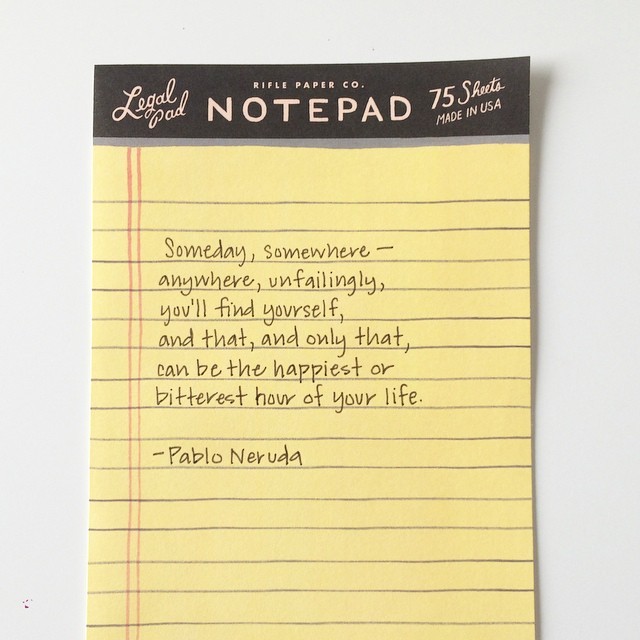 Legal Pad
RIFLE PAPER CO.
NOTEPAD
75 Sheets
MADE IN USA
Someday, somewhere –
anywhere, unfailingly,
you'll find yourself,
and that, and only that,
can be the happiest or
bitterest hour of your life.
-Pablo Neruda